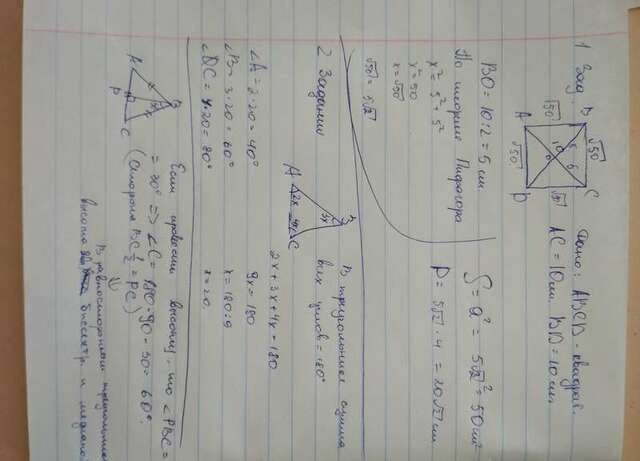 1 Зад.
Дано: ABCD - квадрат.
AC = 10 см. BD = 10 см
B
√50
C
√50
5
5
10
10
√50
A
√50
D
BO = 10 : 2 = 5 см.
По теореме Пифагора
x² = 5² + 5²
x² = 50
x = √50
√50 = 5√2
S = a² = 5√2² = 50 см²
P = 5√2 · 4 = 20√2 см
2 Задание
В треугольнике сумма
всех углов = 180°
B
3x
A 2x 4x C
2x + 3x + 4x = 180
9x = 180
x = 180 : 9
x = 20.
∠A = 2 · 20 = 40°
∠B = 3 · 20 = 60°
∠C = 4 · 20 = 80°
Если провести высоту, то ∠PBC =
= 30° => ∠C = 180 - 90 - 30 = 60°.
(Сторона BC ½ = PC)
A
B
P
C
В равностороннем треугольнике
высота биссектр. и медиана